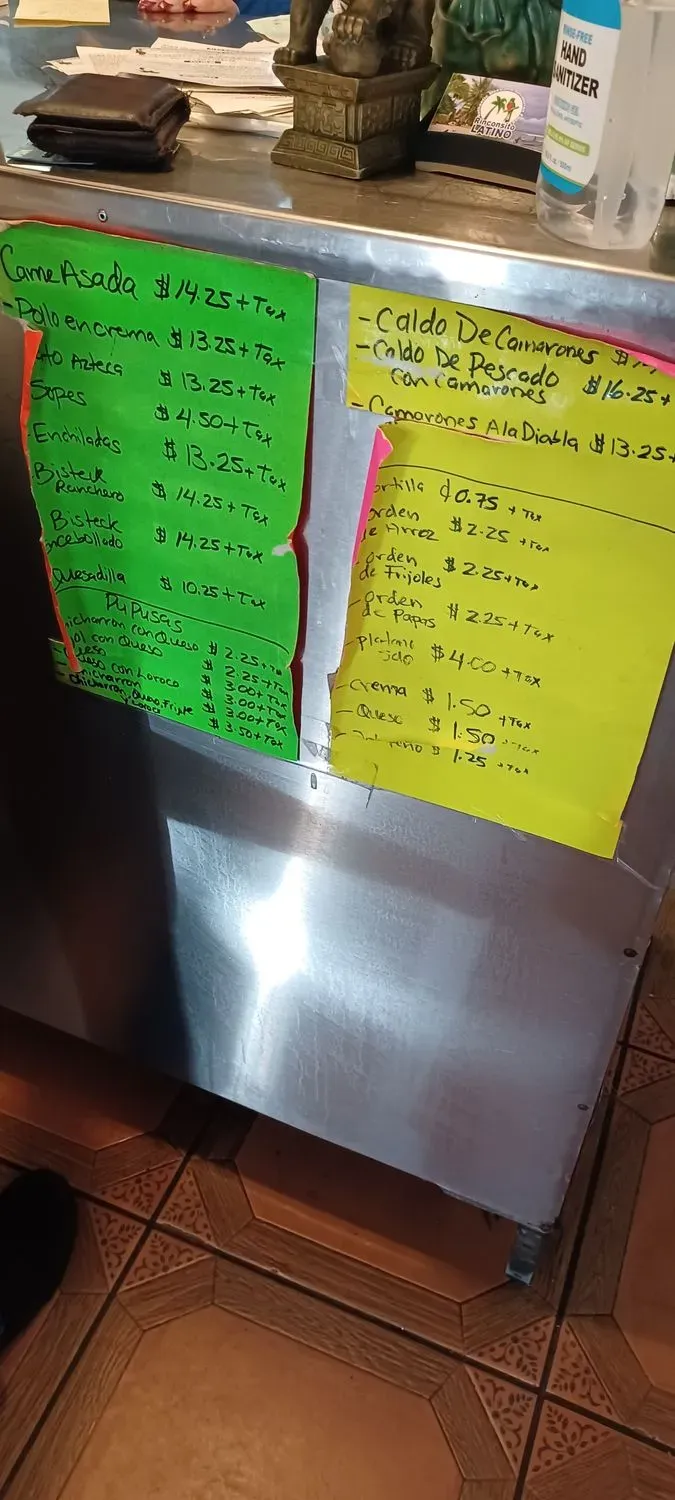 RINSE-FREE
HAND
SANITIZER
Rinconsito
LATINO
Carne Asada $14.25+Tax
-Pollo en crema $13.25+Tax
Azteca $13.25+Tax
Sopes $4.50+Tax
Enchiladas $13.25+Tax
Bisteck
Ranchero $14.25+Tax
Bisteck
ncebollado $14.25+Tax
Quesadilla $10.25+Tax
Pupusas
icharron con Queso $2.25+Tax
ol con Queso $2.25+Tax
-Queso $3.00+Tax
-Queso con Loroco $3.00+Tax
-chicharron $3.00+Tax
-chicharron, Queso, Frijole
y Loroco $3.50+Tax
-Caldo De Camarones $
-Caldo De Pescado $16.25+
con Camarones
-Camarones Ala Diabla $13.25+
ortilla ¢0.75 +Tax
orden
de Arroz $2.25 +Tax
-orden
de Frijoles $2.25+Tax
-orden
de Papas $2.25+Tax
-platano $4.00+Tax
-Crema $1.50 +Tax
-Queso $1.50 +Tax
$1.25 +Tax